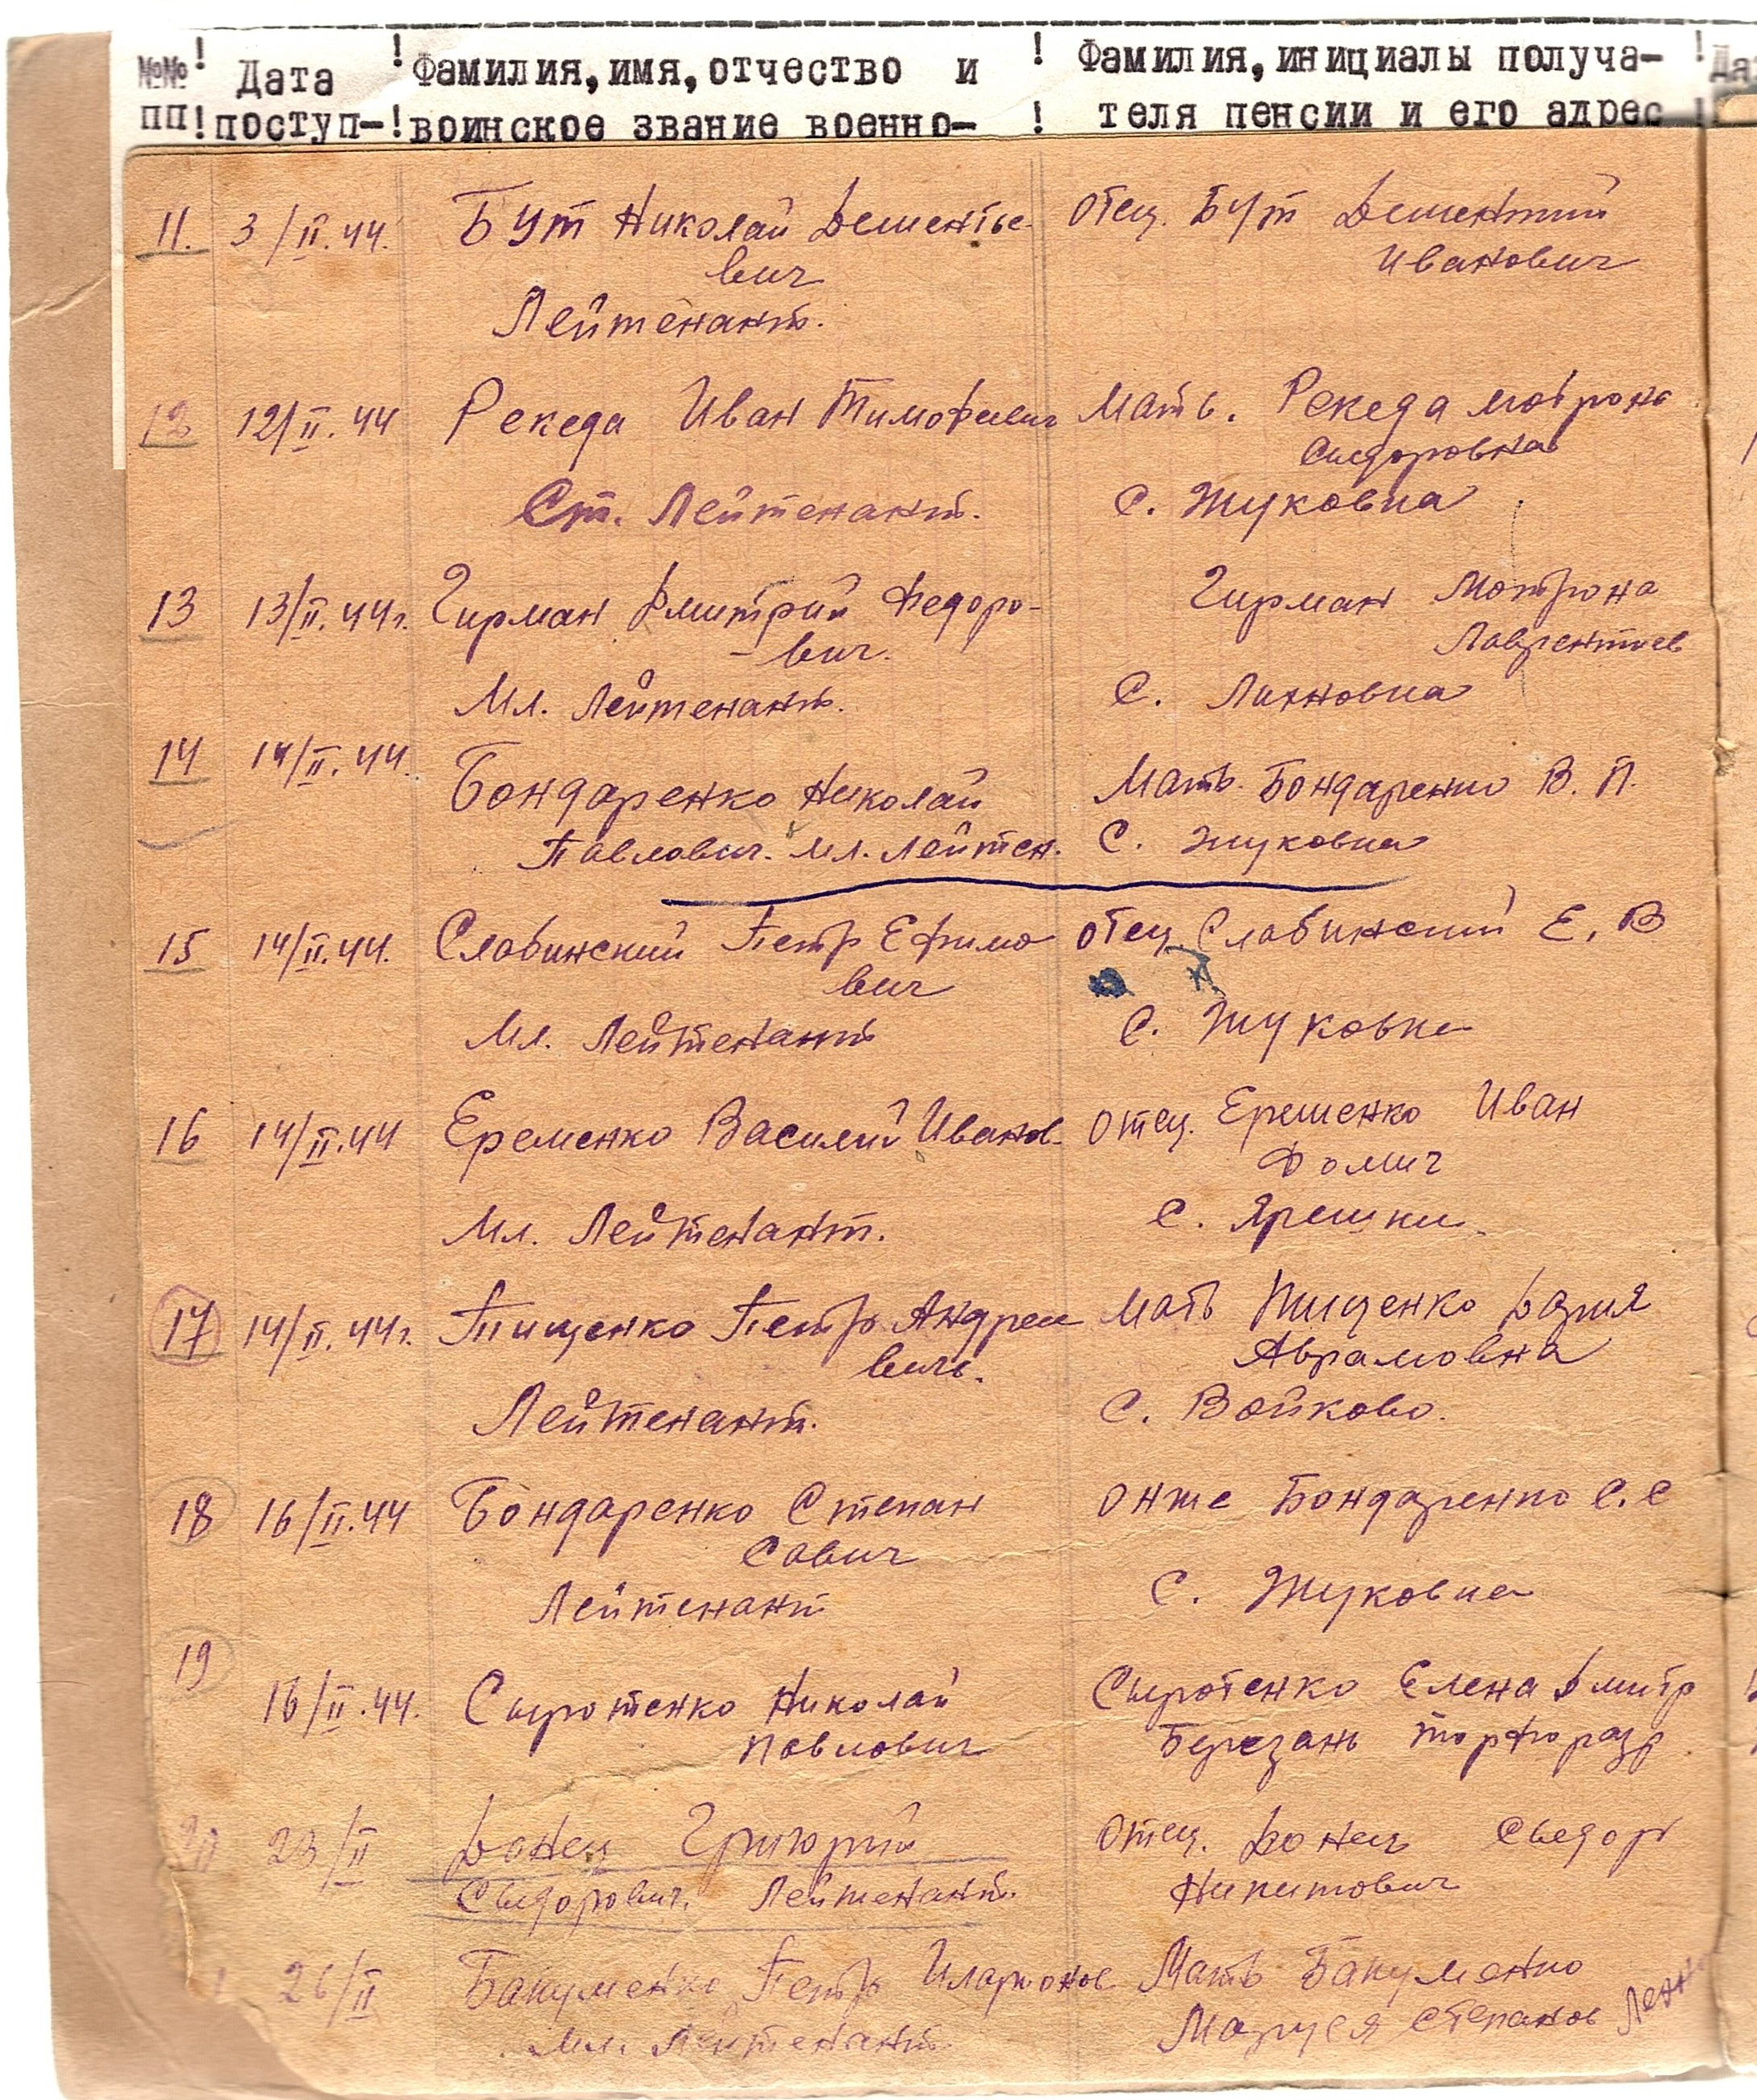 №№ ! Дата ! Фамилия, имя, отчество и ! Фамилия, инициалы получа- !
ПП ! поступ- ! воинское звание военно- ! теля пенсии и его адрес !
11. 3/II.44. Бут Николай Дементье- отец. Бут Дементий
вич Иванович
Лейтенант.
12 12/II.44 Рекеда Иван Тимофеевич Мать. Рекеда Мотрона
Сидоровна
Ст. Лейтенант. С. Жуковка
13 13/II.44г. Гирман Дмитрий Федоро- Гирман Мотрона
вич. Лаврентиев
Мл. Лейтенант. С. Лихновка
14 14/II.44. Бондаренко Николай Мать. Бондаренко В. П.
Павлович. мл. лейтен. С. Жуковка
15 14/II.44. Славинский Петр Ефимо отец Славинский Е. В
вич
Мл. Лейтенант С. Жуковка
16 14/II.44 Еременко Василий Иванов. отец. Еременко Иван
Фомич
Мл. Лейтенант. С. Ярешки.
17 14/II.44г. Пищенко Петр Андрее мать Пищенко Дария
вичь. Аврамовна
Лейтенант. С. Войково.
18 16/II.44 Бондаренко Степан онже Бондаренко С. С
Савич
Лейтенант С. Жуковка
19
16/II.44. Сыротенко Николай Сыротенко Елена Дмитр
Павлович Березань торфоразр
20 23/II Донец Григорий отец. Донець Сыдор
Сыдорович. Лейтенант. Никитович
26/II Бакуменко Петр Иларионов Мать Бакуменко
Мл. Лейтенант Маруся Степанов